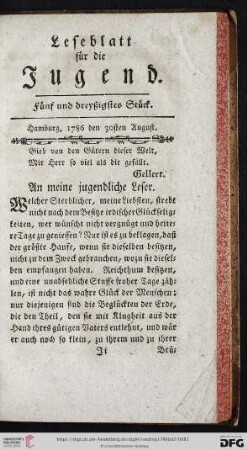 Leseblatt
für die
Jugend.
Fünf und dreyßigstes Stück.
Hamburg, 1786 den 30sten August.
Gieb von den Gütern dieser Welt,
Mir Herr so viel als dir gefällt.
Gellert.
An meine jugendliche Leser.
Welcher Sterblicher, meine Liebsten, strebt
nicht nach dem Besitze irdischer Glückselig-
keiten, wer wünscht nicht vergnügt und heite-
re Tage zu geniessen? Nur ist es zu beklagen, daß
der größte Haufe, wenn sie dieselben besitzen,
nicht zu dem Zweck gebrauchen, wozu sie diesel-
ben empfangen haben. Reichthum besitzen,
und eine unabsehliche Stuffe froher Tage zäh-
len, ist nicht das wahre Glück der Menschen;
nur diejenigen sind die Beglückten der Erde,
die den Theil, den sie mit Klugheit aus der
Hand ihres gütigen Vaters entlehnt, und wär
er auch noch so klein, zu ihrem und zu ihrer
Brü-
DFG